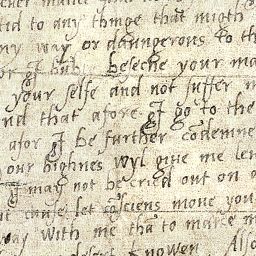 tid to any thinge that migth
ny way or daungerous to th
or I hu beseche your ma
your selfe and not suffer m
nd that afore I go to the
afor I be further cōdemne
our highnes wyl giue me len
I may not be cried out on
cause let cōsciens move you
way with me tha to make m
desert knowen Also